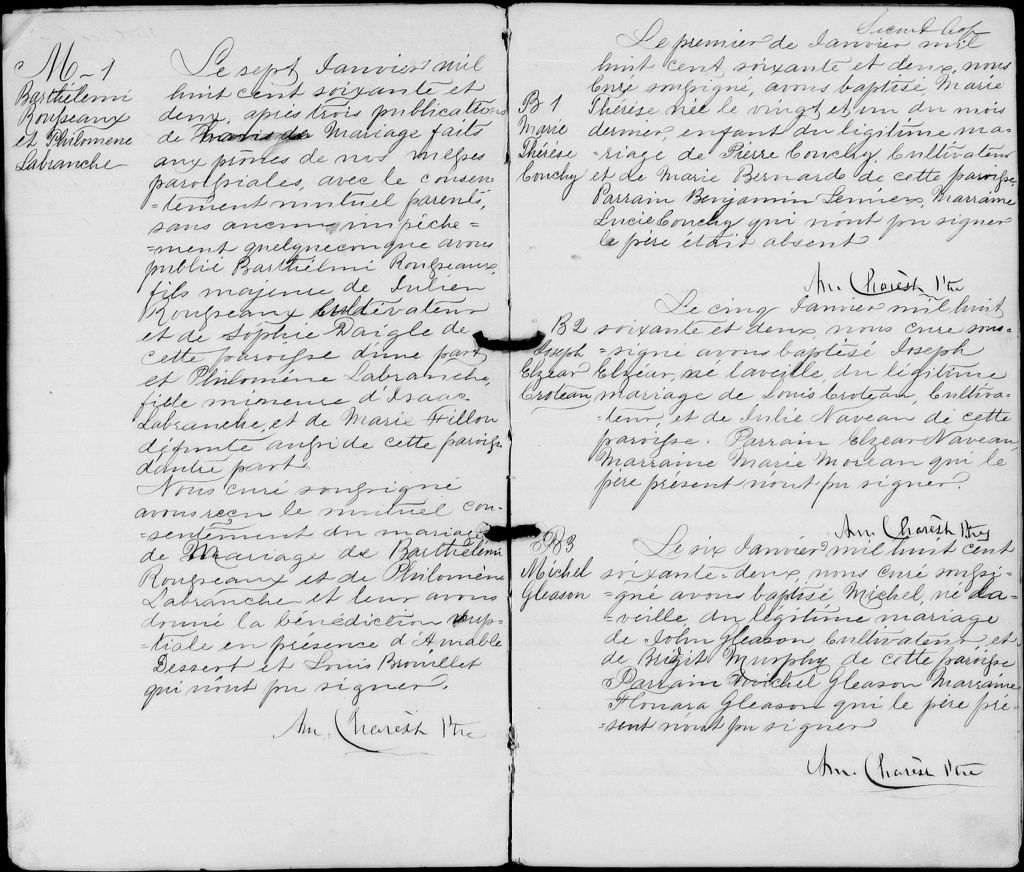 M-1
Barthélemi
Rousseaux
et Philomene
Labranche
Le sept Janvier mil
huit cent soixante et
deux, après trois publications
de Mariage faits
aux prônes de nos messes
paroissiales, avec le consen=
=tement mutuel parents,
sans aucun impêche=
=ment quelqueconque avons
publié Barthélmi Rousseaux,
fils majeure de Julien
Rousseaux Cultivateur
et de Sophie Daigle de
cette paroisse d'une part,
et Philoméne Labranche,
fille mineure d'Isaac
Labranche, et de Marie Hillou
défunte aussi de cette paroisse
dautre part
Nous curé soussigné
avons reçu le mutuel con=
=sentement du mariage
de Mariage de Barthélémi
Rousseaux et de Philomène
Labranche et leur avons
donné la bénédiction nup=
=tiale en présence d'Amable
Dessert et Louis Brouillet
qui n'ont pu signer.
An. Charèst Ptre
Le premier de Janvier mil
huit cent soixante et deux, nous
Curé soussigné, avons baptisé Marie
Thérèse née le vingt et un du mois
dernier, enfant du légitime ma=
=riage de Pierre Couchy, Cultivateur
et de Marie Bernard de cette paroisse
Parrain Benjamin Marraine
Lucie Couchy qui n'ont pu signer
le père était absent
B1
Marie
Thérèse
Couchy
An. Charèst Ptre
Le cinq Janvier mil huit
soixante et deux, nous curé sous=
=signé avons baptisé Joseph
Elzéar, né laveille, du légitime
mariage de Louis Croteau, Cultiva=
=teur, et de Julie Naveau de cette
paroisse. Parrain Elzear Naveau,
Marraine Marie Moreau qui le
père présent n'ont pu signer.
B2
Joseph
Elzear
Croteau
An. Charèst Ptre
Le six Janvier mil huit cent
soixante=deux, nous curé soussi=
=gné avons baptisé Michel, né la=
=veille, du légitime mariage
de John Gleason Cultivateur et
de Bridgit Murphy de cette paroisse
Parrain Michel Gleason Marraine
Honara Gleason qui le père pré=
=sent n'ont pu signer
B3
Michel
Gleason
An. Charèst Ptre